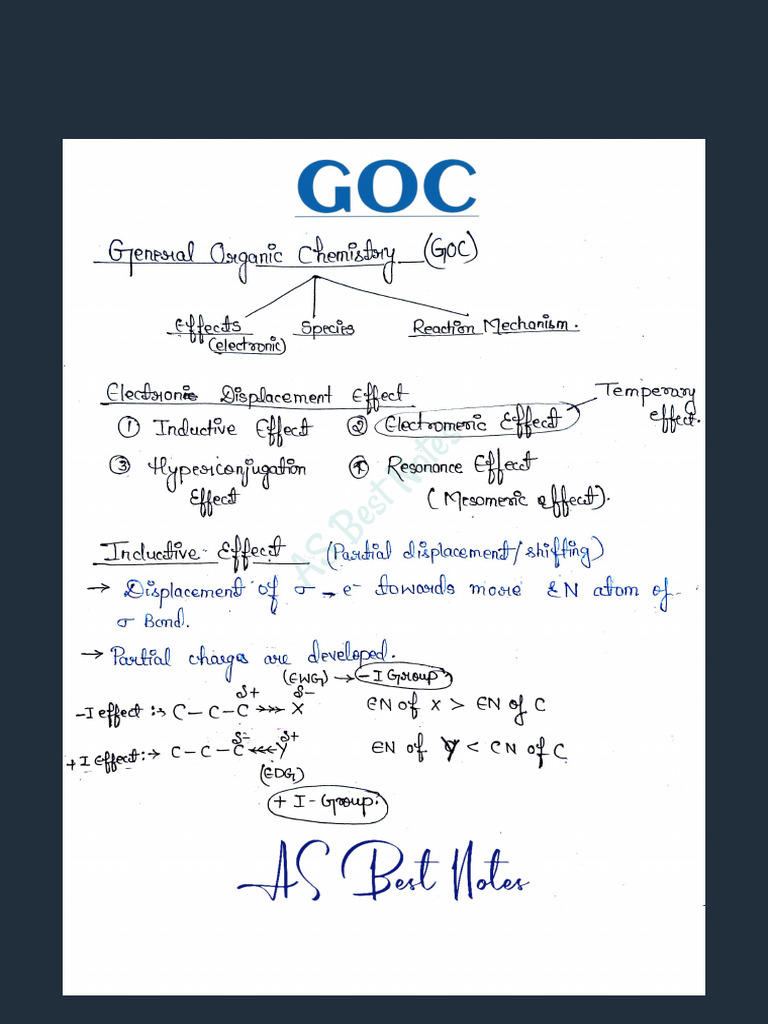 GOC
General Organic Chemistry (GOC)
Effects Species Reaction Mechanism.
(electronic)
Electronic Displacement Effect
Temperary effect.
① Inductive Effect ② Electromeric Effect
③ Hyperconjugation Effect
④ Resonance Effect
(Mesomeric effect).
Inductive Effect (Partial displacement/shifting)
→ Displacement of σ-e⁻ towards more EN atom of
σ Bond.
→ Partial charges are developed.
(EWG) → -I Group
δ+ δ-
-I effect :→ C-C-C→→→X EN of X > EN of C
δ- δ+
+I Effect :→ C-C-C←←←Y EN of Y < EN of C
(EDG)
+ I-Group.
AS Best Notes
AS Best Notes